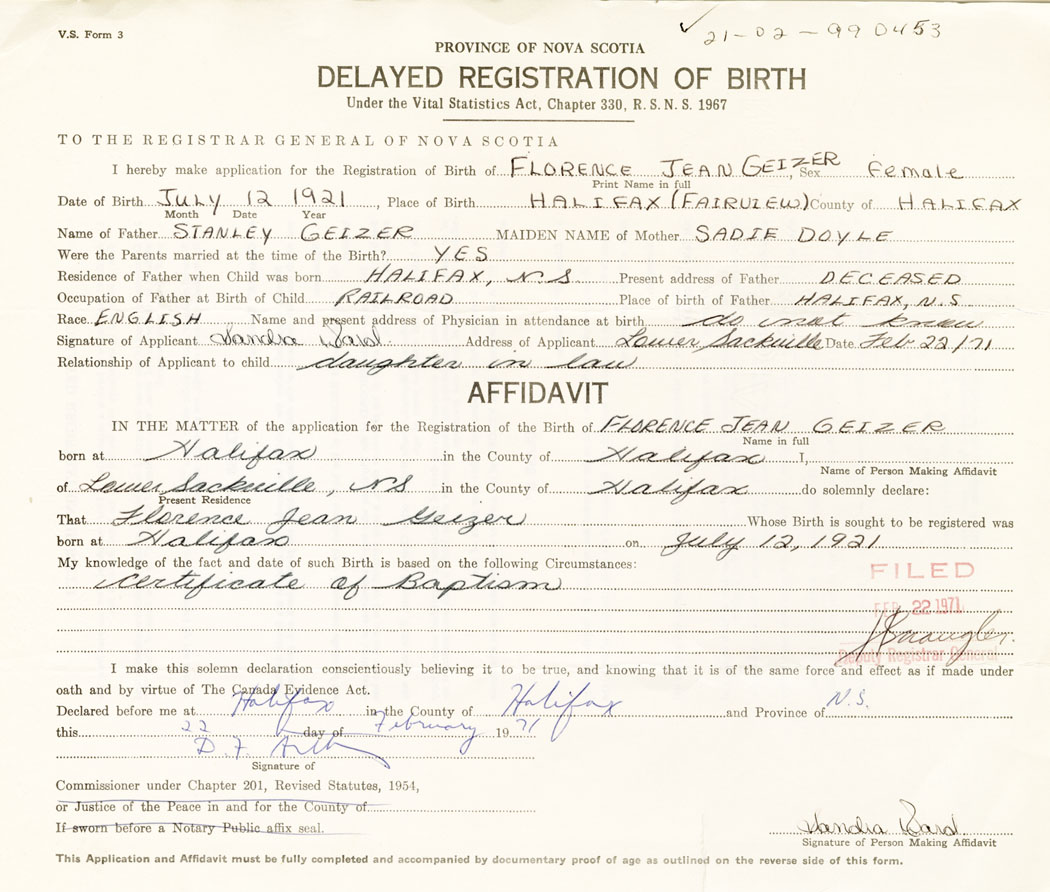 V.S. Form 3
21-02-990453
PROVINCE OF NOVA SCOTIA
DELAYED REGISTRATION OF BIRTH
Under the Vital Statistics Act, Chapter 330, R. S. N. S. 1967
TO THE REGISTRAR GENERAL OF NOVA SCOTIA
I hereby make application for the Registration of Birth of FLORENCE JEAN GEIZER, Sex Female
Print Name in full
Date of Birth JULY 12 1921, Place of Birth HALIFAX (FAIRVIEW) County of HALIFAX
Month Date Year
Name of Father STANLEY GEIZER MAIDEN NAME of Mother SADIE DOYLE
Were the Parents married at the time of the Birth? YES
Residence of Father when Child was born HALIFAX, N.S Present address of Father DECEASED
Occupation of Father at Birth of Child RAILROAD Place of birth of Father HALIFAX, N.S
Race ENGLISH Name and present address of Physician in attendance at birth do not know
Signature of Applicant Sandra Ward Address of Applicant Lower Sackville Date Feb 22/71
Relationship of Applicant to child daughter in law
AFFIDAVIT
IN THE MATTER of the application for the Registration of the Birth of FLORENCE JEAN GEIZER
Name in full
born at Halifax in the County of Halifax I,
Name of Person Making Affidavit
of Lower Sackville, NS in the County of Halifax do solemnly declare:
Present Residence
That Florence Jean Geizer Whose Birth is sought to be registered was
born at Halifax on July 12, 1921
My knowledge of the fact and date of such Birth is based on the following Circumstances:
certificate of Baptism
FILED
FEB 22 1971
Deputy Registrar General
I make this solemn declaration conscientiously believing it to be true, and knowing that it is of the same force and effect as if made under
oath and by virtue of The Canada Evidence Act.
Declared before me at Halifax in the County of Halifax and Province of N.S.
this 22 day of February 1971
D. F.
Signature of
Commissioner under Chapter 201, Revised Statutes, 1954,
or Justice of the Peace in and for the County of
If sworn before a Notary Public affix seal.
Sandra Ward
Signature of Person Making Affidavit
This Application and Affidavit must be fully completed and accompanied by documentary proof of age as outlined on the reverse side of this form.